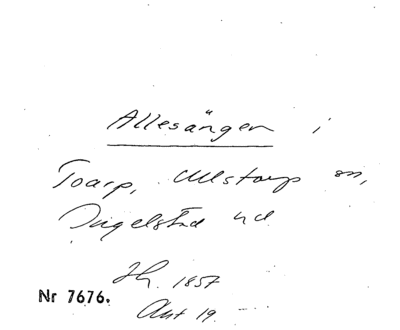 Allesängen i
Toarp, Ullstorps sn,
Ingelstad hd
Sk. 1857
Nr 7676.
Akt 19.